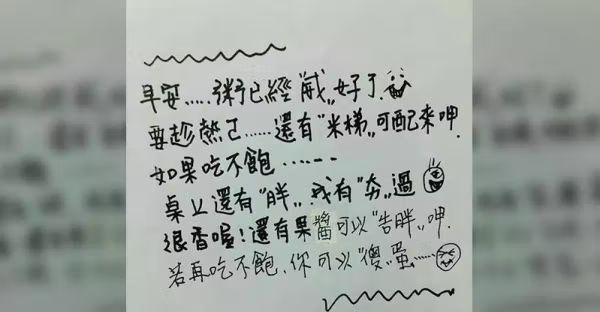 早安.....粥已經"戒"好了.
要趁熱ㄛ.....還有"米梯"可配來呷.
如果吃不飽......
桌上還有"胖".我有"夯"過
很香喔!還有果醬可以"告胖"呷.
若再吃不飽.你可以"傻"蛋.....